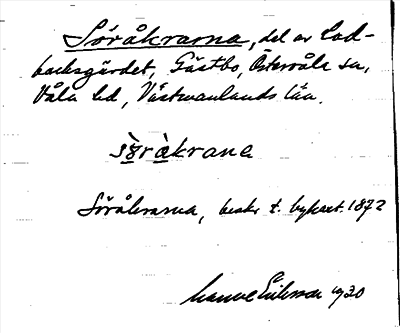 Söråkrarna, del av Lod-
backsgärdet, Gästbo, Östervåla sn,
Våla hd, Västmanlands län.
sö̀råkrana
Söråkrarna, beskr t. bykart. 1872
Manne Eriksson 1930